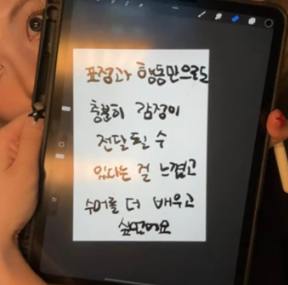 표정과 행동만으로도
충분히 감정이
전달될 수
있다는 걸 느꼈고
수어를 더 배우고
싶어요